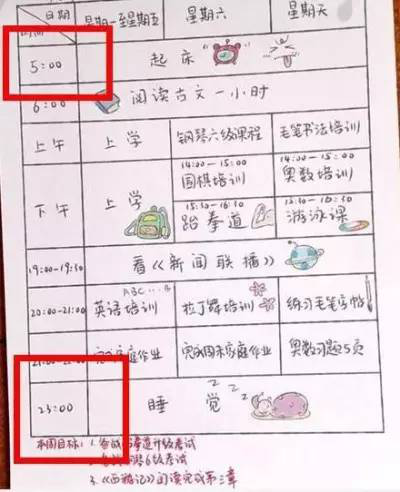 日期 星期一至星期五 星期六 星期天
时间
5:00 起床
6:00 阅读古文一小时
上午 上学 钢琴六级课程 毛笔书法培训
下午 上学 14:00—15:00 围棋培训 14:00—15:00 奥数培训
15:30—16:30 跆拳道 游泳课
19:00-19:30 看《新闻联播》
ABC
20:00-21:00 英语培训 拉丁舞培训 练习毛笔字帖
完成家庭作业 完成周末家庭作业 奥数习题5页
23:00 睡觉
zzz
本周目标: 1. 升级考试
2. 6级考试
3.《西游记》阅读完成第三章